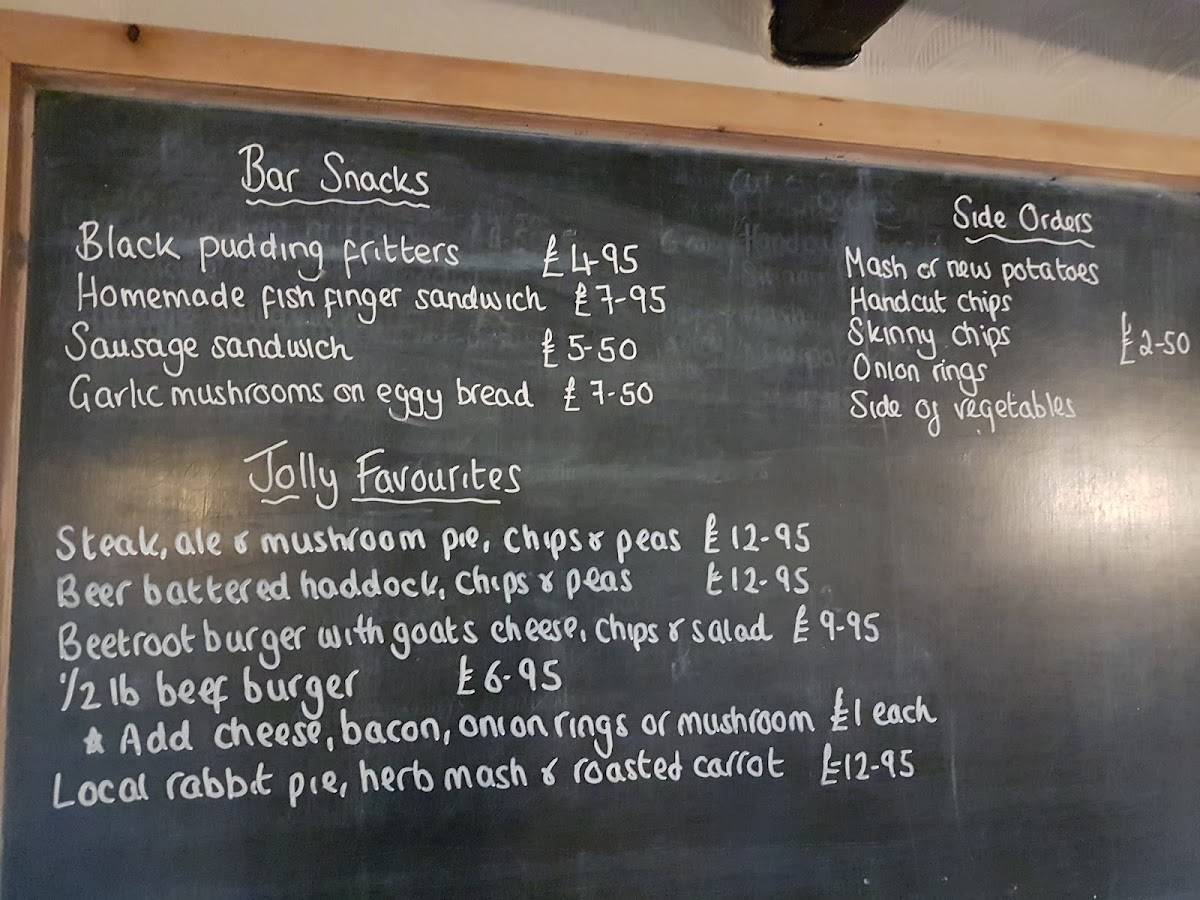 Bar Snacks
Black pudding fritters £4-95
Homemade fish finger sandwich £7-95
Sausage sandwich £5-50
Garlic mushrooms on eggy bread £7-50
Side Orders
Mash or new potatoes
Handcut chips
Skinny chips £2-50
Onion rings
Side of vegetables
Jolly Favourites
Steak, ale & mushroom pie, chips & peas £12-95
Beer battered haddock, chips & peas £12-95
Beetroot burger with goats cheese, chips & salad £9-95
1/2 lb beef burger £6-95
* Add cheese, bacon, onion rings or mushroom £1 each
Local rabbit pie, herb mash & roasted carrot £12-95